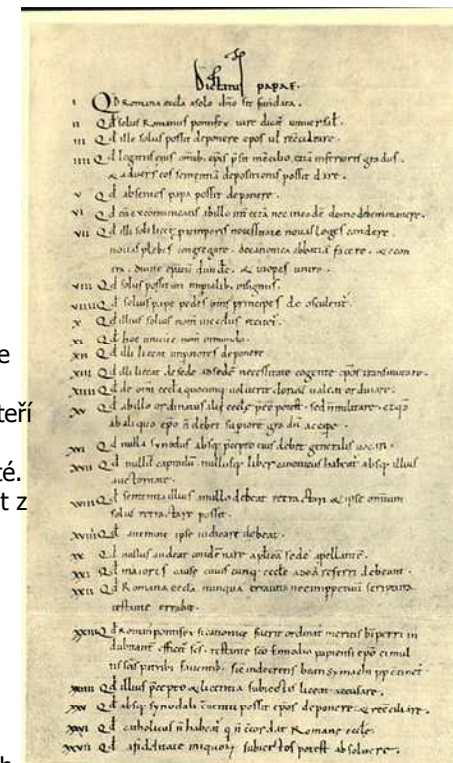 Dictatus papae.
I Qd Romana eccla a solo dño sit fundata.
II Qd solus Romanus pontifex iure dicat universał.
III Qd ille solus possit deponere epos ul recciliare.
IIII Qd legatus eius omib epis psit in ccilio etia inferioris gradus.
& adversus eos sententia depositionis possit dare.
V Qd absentes papa possit deponere.
VI Qd cu excommunicatis ab illo int cetera nec in eade domo debem manere.
VII Qd illi soli licet p temporis necessitate novas leges condere
novas plebes congregare. de canonica abbatia facere. & e con
tra. divite epatu divide. & inopes unire.
VIII Qd solus possit uti impialib insigniis.
VIIII Qd solius pape pedes oms principes de osculent.
X Qd illius solius nom in ecclis recitet.
XI Qd hoc unicu e nom in mundo.
XII Qd illi liceat impatores deponere
XIII Qd illi liceat de sede ad sede necessitate cogente epos transmutare.
XIIII Qd de omi eccla quocunq voluerit clericu valeat ordinare.
e
teří
té.
t z
XV Qd ab illo ordinatus alii eccle pee potest. sed n militare. et qd
ab aliquo epo n debet supiore gradu accipe.
XVI Qd nulla synodus absq pcepto eius debet generalis vocari.
XVII Qd nullu capitulu nullusq liber canonicus habeat absq illius
auctoritate.
XVIII Qd sententia illius a nullo debeat retractari & ipse omium
solus retractare possit.
XVIIII Qd a nemine ipse iudicare debeat.
XX Qd nullus audeat condenare aplica sede apellante.
XXI Qd maiores cause cuiuscunq eccle ad ea referri debeant.
XXII Qd Romana eccla nunqua erravit nec impetuu scriptura
testante errabit.
XXIII Qd Romanus pontifex si canonice fuerit ordinat meritis b petri in
dubitant efficit scs. testante sco Ennodio papiensi epo ei mul
tis scis patrib faventib. sic in decretis beati symachi pp continet
XXIIII Qd illius pcepto & licentia subiectis liceat accusare.
XXV Qd absq synodali conventu possit epos deponere & recciliare.
XXVI Qd catholicus n habeat q n ccordat Romane eccle.
XXVII Qd a fidelitate iniquoru subiectos potest absolvere.
h